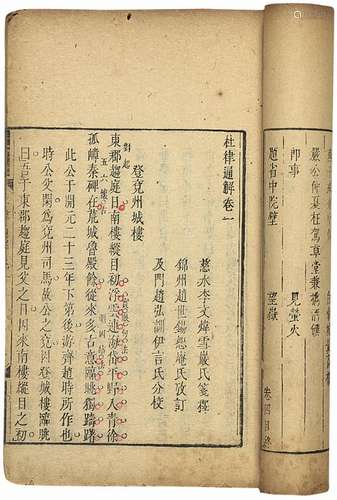 杜律通解卷一
慈水李文煒雪巖氏箋釋
錦州趙世錫超菴氏攷訂
及門趙弘訓伊言氏分校
登兗州城樓
東郡趨庭日南樓縱目初浮雲連海岱平野入青徐
孤嶂秦碑在荒城魯殿餘從來多古意臨眺獨躊躇
此公于開元二十三年下第後游齊趙時所作也
時公父閑為兗州司馬故公之兗因登城樓臨眺
曰吾于東郡趨庭見父之日因來南樓縱目之初
嚴公仲夏枉駕草堂兼攜酒饌
即事
見螢火
題省中院壁
望嶽
卷四目錄